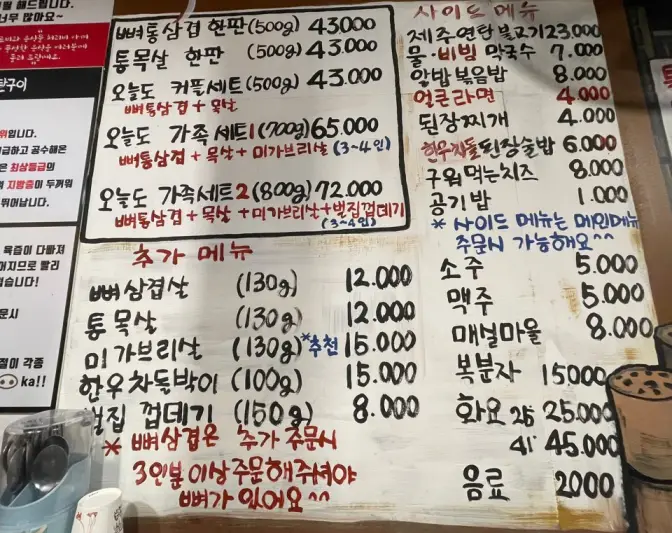 뼈통삼겹 한판 (500g) 43000
통목살 한판 (500g) 43.000
오늘도 커플세트 (500g) 43.000
뼈통삼겹 + 목살
오늘도 가족세트1 (700g) 65.000
뼈통삼겹 + 목살 + 미가브리살 (3~4인)
오늘도 가족세트2 (800g) 72.000
뼈통삼겹 + 목살 + 미가브리살 + 벌집껍데기
(3~4인)
추가 메뉴
뼈삼겹살 (130g) 12.000
통목살 (130g) 12.000
미가브리살 (130g) *추천 15.000
한우차돌박이 (100g) 15.000
벌집 껍데기 (150g) 8.000
* 뼈삼겹은 추가 주문시
3인분이상 주문해주셔야
뼈가 있어요^^
사이드 메뉴
제주연탄불고기 23.000
물·비빔 막국수 7.000
알밥볶음밥 8.000
얼큰라면 4.000
된장찌개 4.000
한우차돌된장술밥 6.000
구워먹는치즈 8.000
공기밥 1.000
* 사이드 메뉴는 메인메뉴
주문시 가능해요^^
소주 5.000
맥주 5.000
매실마을 8.000
복분자 15000
화요 25 25.000
41 45.000
음료 2000
입니다.
최상등급의
뛰어납니다.
육즙이 다빠져
습니다!
문시
절이 각종
ka!!